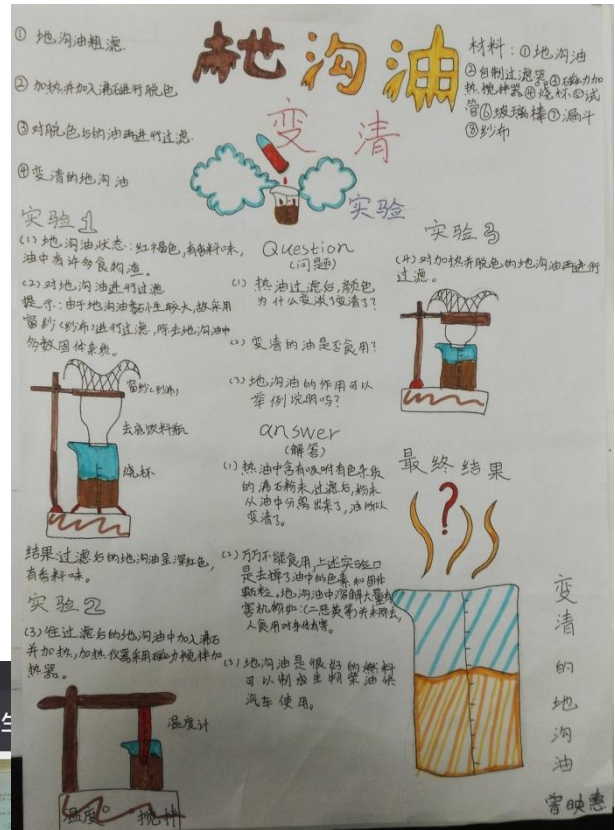 ① 地沟油粗滤.
② 加热并加入沸石进行脱色
③ 对脱色后的油再进行过滤.
④ 变清的地沟油
地沟油
变清
实验
材料：①地沟油
②自制过滤器③磁力加
热搅拌器④烧杯⑤试
管⑥玻璃棒⑦漏斗
⑧纱布
实验1
(1) 地沟油状态：红褐色，有香料味，
油中有许多食物渣。
(2) 对地沟油进行过滤
提示：由于地沟油黏小生较大，故采用
窗纱(纱布)进行过滤，除去地沟油中
多数固体杂质。
窗纱(纱布)
去底饮料瓶
烧杯
结果：过滤后的地沟油呈深红色，
有香料味。
实验2
(3) 往过滤后的地沟油中加入沸石
并加热，加热仪器采用磁力搅拌加
热器。
温度计
温度 搅拌
Question
(问题)
(1) 热油过滤后，颜色
为什么变淡了变清了？
(2) 变清的油是否食用？
(3) 地沟油的作用可以
举例说明吗？
answer
(解答)
(1) 热油中含有吸附有色杂质
的沸石粉末，过滤后，粉末
从油中分离出来了，油所以
变清了。
(2) 万万不能食用，上述实验只
是去掉了油中的色素和固体
颗粒。地沟油中溶解大量有
害机物如：(二恶英等)并未除去，
人食用对身体有害。
(3) 地沟油是很好的燃料
可以制成生物柴油供
汽车使用。
实验3
(4) 对加热并脱色的地沟油再进行
过滤。
最终结果
?
变清的地沟油
曾映惠